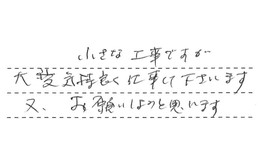 小さな工事ですが
大変気持良く仕事して下さいます
又、お願いしようと思います